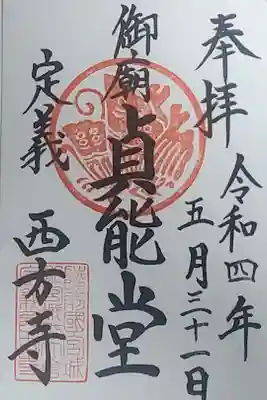 奉拝
令和四年
五月三十一日
御廟
貞能堂
定義
西方寺